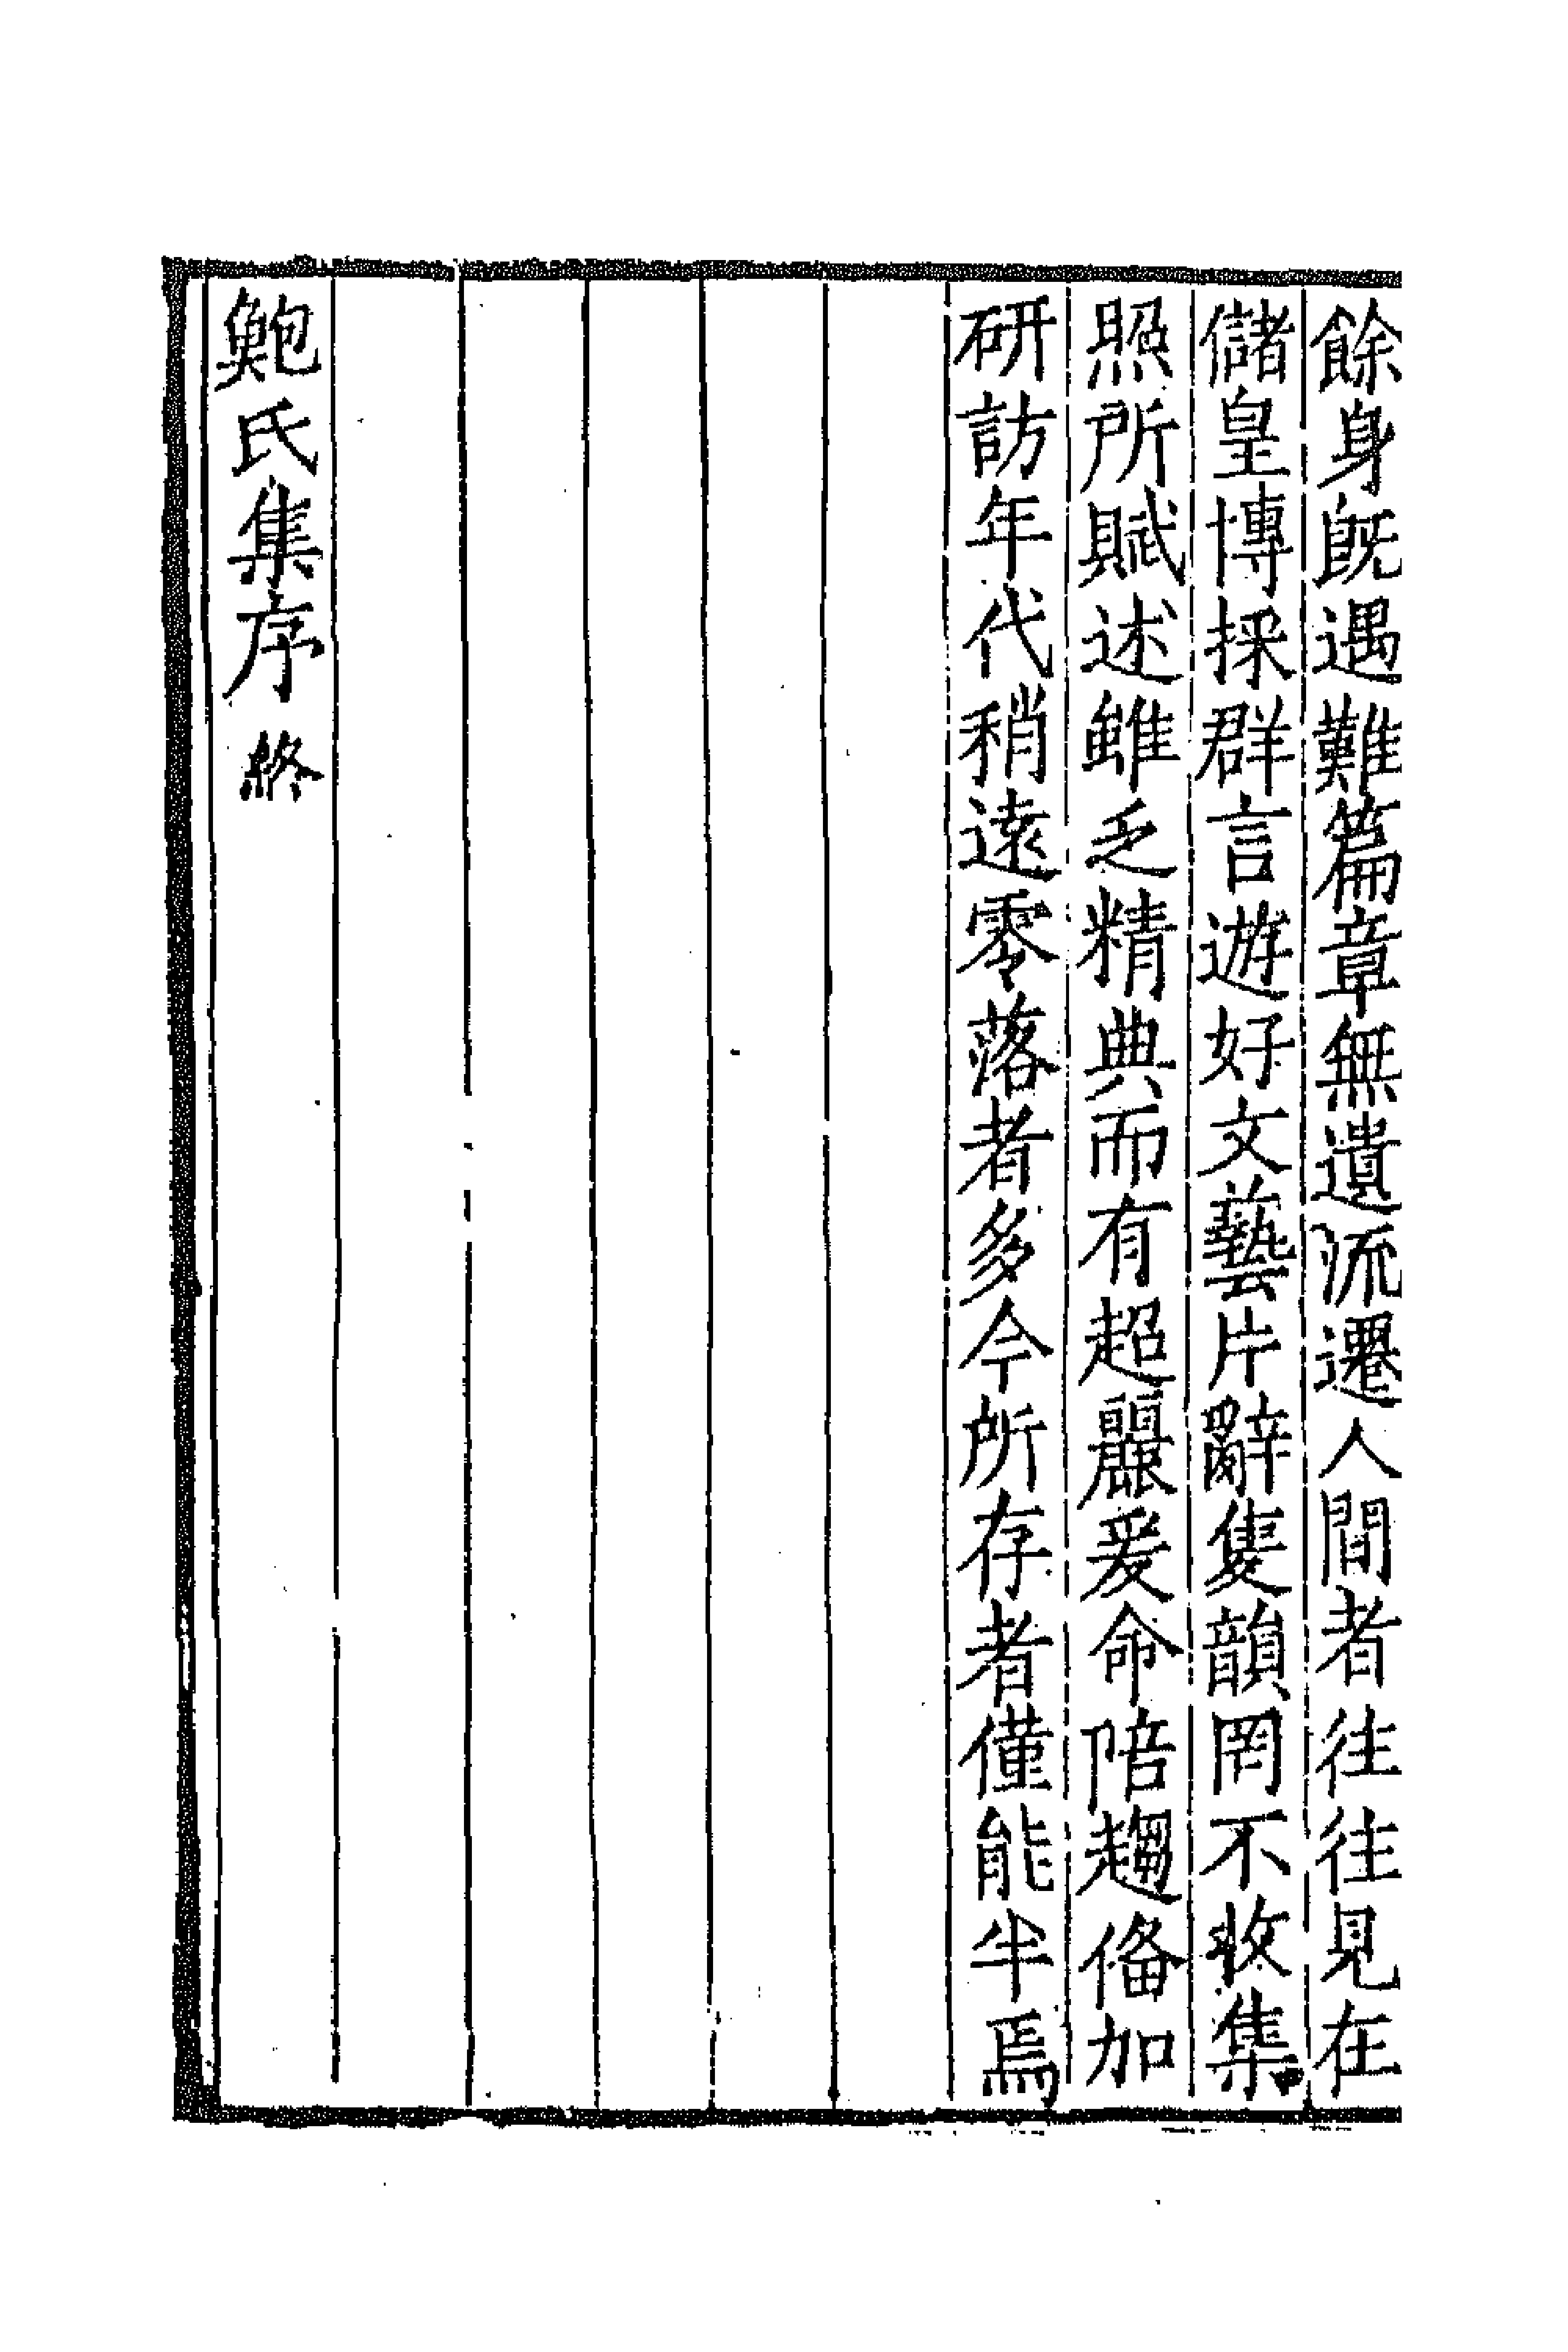 餘身既遇難篇章無遺流遷人間者往往見在
儲皇博採群言遊好文藝片辭隻韻罔不收集
照所賦述雖乏精典而有超麗爰命陪趨俻加
研訪年代稍遠零落者多今所存者僅能半焉
鮑氏集序終